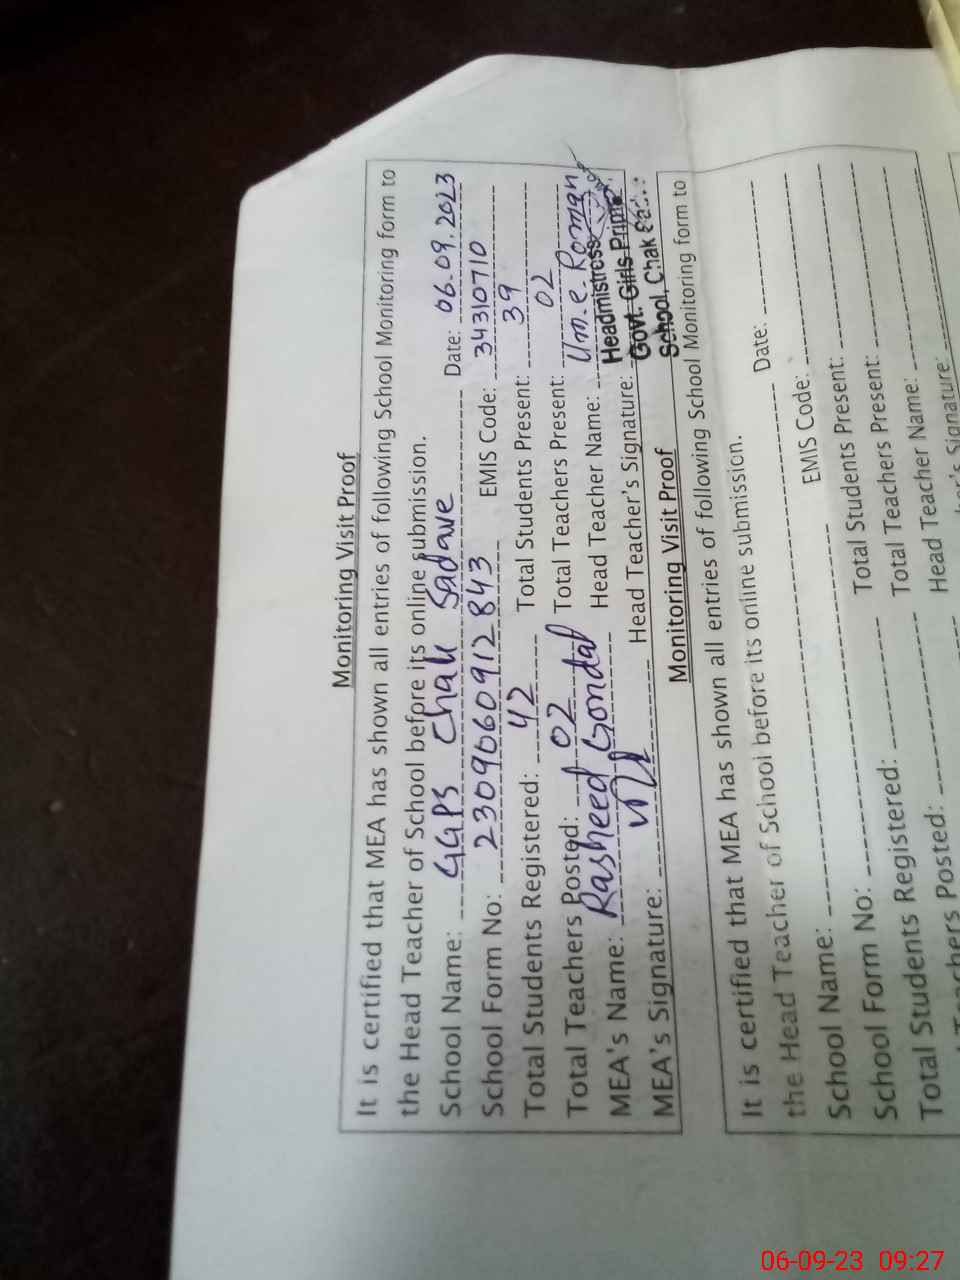 Monitoring Visit Proof
It is certified that MEA has shown all entries of following School Monitoring form to
the Head Teacher of School before its online submission.
School Name: GGPS Chak Sadane Date: 06.09.2023
School Form No: 2309060912843 EMIS Code: 34310710
Total Students Registered: 42 Total Students Present: 39
Total Teachers Posted: 02 Total Teachers Present: 02
MEA's Name: Rasheed Gondal Head Teacher Name: Um.e. Roman
MEA's Signature: Head Teacher's Signature:
Headmistress
Govt. Girls Prim
School, Chak
Monitoring Visit Proof
It is certified that MEA has shown all entries of following School Monitoring form to
the Head Teacher of School before its online submission.
School Name: Date:
School Form No: EMIS Code:
Total Students Registered: Total Students Present:
Teachers Posted: Total Teachers Present:
Head Teacher Name:
Signature:
06-09-23 09:27